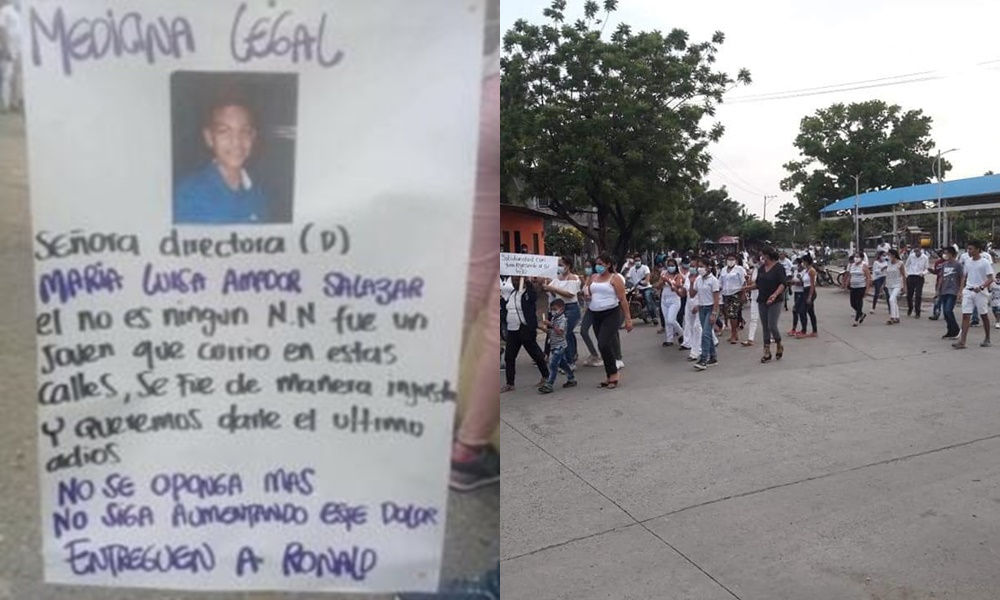 MEDICINA LEGAL
SEÑORA directora (D)
MARIA LUISA AMADOR SALAZAR
el no es ningun N.N fue un
joven que corrio en estas
calles, se fue de manera injusta
y queremos darle el ultimo
adios
NO SE OPONGA MAS
NO SIGA AUMENTANDO ESTE DOLOR
ENTREGUEN A RONALD
Solidaridad con